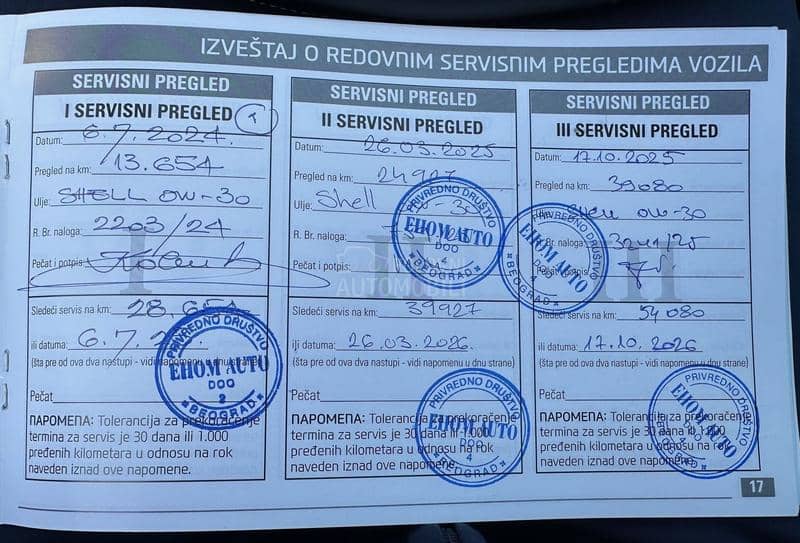 IZVEŠTAJ O REDOVNIM SERVISNIM PREGLEDIMA VOZILA
SERVISNI PREGLED
I SERVISNI PREGLED 1
Datum: 6.7.2024.
Pregled na km: 13.654
Ulje: SHELL 0W-30
R. Br. naloga: 2203/24
Pečat i potpis:
Sledeći servis na km: 28.654
ili datuma: 6.7.
(šta pre od ova dva nastupi - vidi napomenu u dnu strane)
Pečat
NAPOMENA: Tolerancija za prekoračenje
termina za servis je 30 dana ili 1.000
pređenih kilometara u odnosu na rok
naveden iznad ove napomene.
PRIVREDNO DRUŠTVO
EHOM AUTO
DOO
2
BEOGRAD
SERVISNI PREGLED
II SERVISNI PREGLED
Datum: 26.03.2025
Pregled na km: 24927
Ulje: Shell 0W-30
R. Br. naloga:
Pečat i potpis:
PRIVREDNO DRUŠTVO
EHOM AUTO
DOO
BEOGRAD
Sledeći servis na km: 39927
ili datuma: 26.03.2026.
(šta pre od ova dva nastupi - vidi napomenu u dnu strane)
Pečat
NAPOMENA: Tolerancija za prekoračenje
termina za servis je 30 dana ili 1.000
pređenih kilometara u odnosu na rok
naveden iznad ove napomene.
PRIVREDNO DRUŠTVO
EHOM AUTO
DOO
4
BEOGRAD
SERVISNI PREGLED
III SERVISNI PREGLED
Datum: 17.10.2025
Pregled na km: 39080
Ulje: Shell 0W-30
R. Br. naloga: 3241/25
Pečat i potpis:
PRIVREDNO DRUŠTVO
EHOM AUTO
DOO
4
BEOGRAD
Sledeći servis na km: 54080
ili datuma: 17.10.2026.
(šta pre od ova dva nastupi - vidi napomenu u dnu strane)
Pečat
NAPOMENA: Tolerancija za prekoračenje
termina za servis je 30 dana ili 1.000
pređenih kilometara u odnosu na rok
naveden iznad ove napomene.
PRIVREDNO DRUŠTVO
EHOM AUTO
DOO
4
BEOGRAD
I
II
III
AUTOMOBILI
17